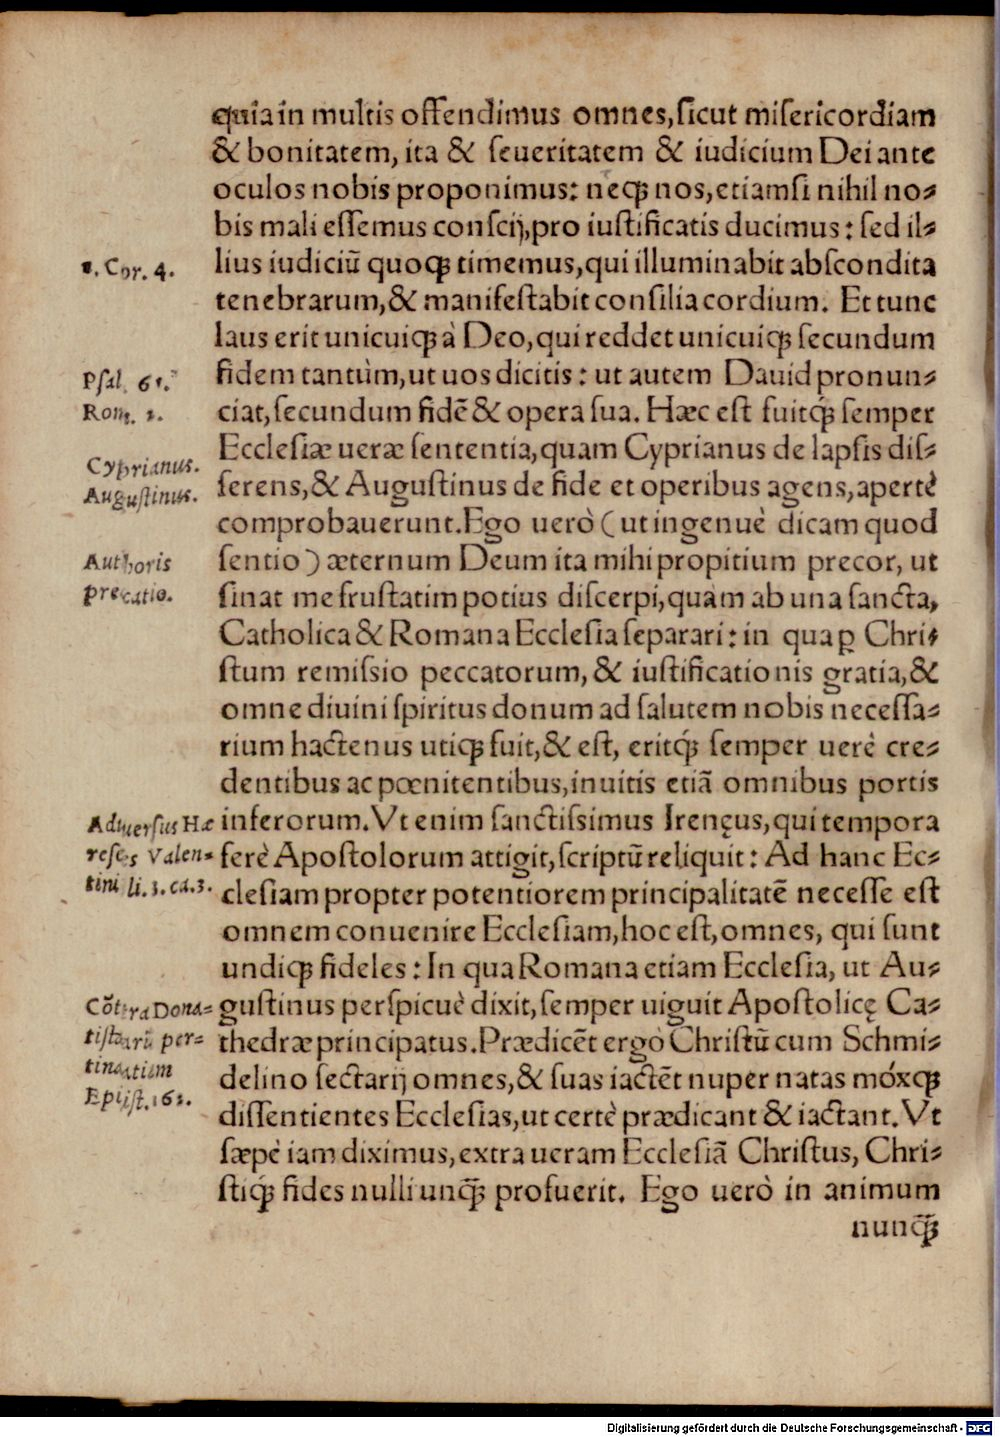 quia in multis offendimus omnes, sicut misericordiam
& bonitatem, ita & seueritatem & iudicium Dei ante
oculos nobis proponimus: neqꝫ nos, etiamsi nihil no⸗
bis mali essemus conscij, pro iustificatis ducimus: sed il⸗
lius iudiciũ quoqꝫ timemus, qui illuminabit abscondita
1. Cor. 4.
tenebrarum, & manifestabit consilia cordium. Et tunc
laus erit unicuiqꝫ à Deo, qui reddet unicuiqꝫ secundum
fidem tantùm, ut uos dicitis: ut autem Dauid pronun⸗
Psal. 61.
ciat, secundum fidẽ & opera sua. Hæc est fuitqꝫ́ semper
Rom. 2.
Ecclesiæ ueræ sententia, quam Cyprianus de lapsis dis⸗
Cyprianus.
serens, & Augustinus de fide et operibus agens, apertè
Augustinus.
comprobauerunt. Ego uerò (ut ingenuè dicam quod
sentio) æternum Deum ita mihi propitium precor, ut
Authoris
sinat me frustatim potius discerpi, quàm ab una sancta,
precatio.
Catholica & Romana Ecclesia separari: in qua ꝑ Chri⸗
stum remissio peccatorum, & iustificationis gratia, &
omne diuini spiritus donum ad salutem nobis necessa⸗
rium hactenus utiqꝫ fuit, & est, eritqꝫ́ semper uerè cre⸗
dentibus ac pœnitentibus, inuitis etiã omnibus portis
inferorum. Vt enim sanctissimus Irenęus, qui tempora
Aduersus Hæ
ferè Apostolorum attigit, scriptũ reliquit: Ad hanc Ec⸗
reses Valen⸗
clesiam propter potentiorem principalitatẽ necesse est
tini li. 3. ca. 3.
omnem conuenire Ecclesiam, hoc est, omnes, qui sunt
undiqꝫ fideles: In qua Romana etiam Ecclesia, ut Au⸗
gustinus perspicuè dixit, semper uiguit Apostolicę Ca⸗
Cõtra Dona⸗
thedræ principatus. Prædicẽt ergò Christũ cum Schmi⸗
tistarũ per⸗
delino sectarij omnes, & suas iactẽt nuper natas móxqꝫ
tinatiam
dissentientes Ecclesias, ut certè prædicant & iactant. Vt
Epist. 162.
sæpè iam diximus, extra ueram Ecclesiã Christus, Chri⸗
stiqꝫ́ fides nulli unqꝫ̃ profuerit. Ego uerò in animum
nunqꝫ̃
Digitalisierung gefördert durch die Deutsche Forschungsgemeinschaft - DFG